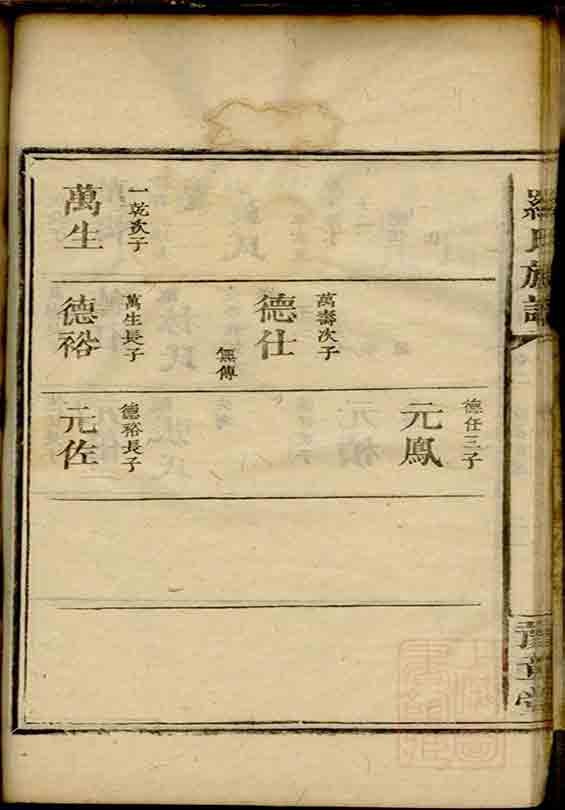 羅氏族譜
豫章堂
一乾次子
萬生
萬壽次子
德仕
無傳
萬生長子
德裕
德任三子
元鳳
德裕長子
元佐